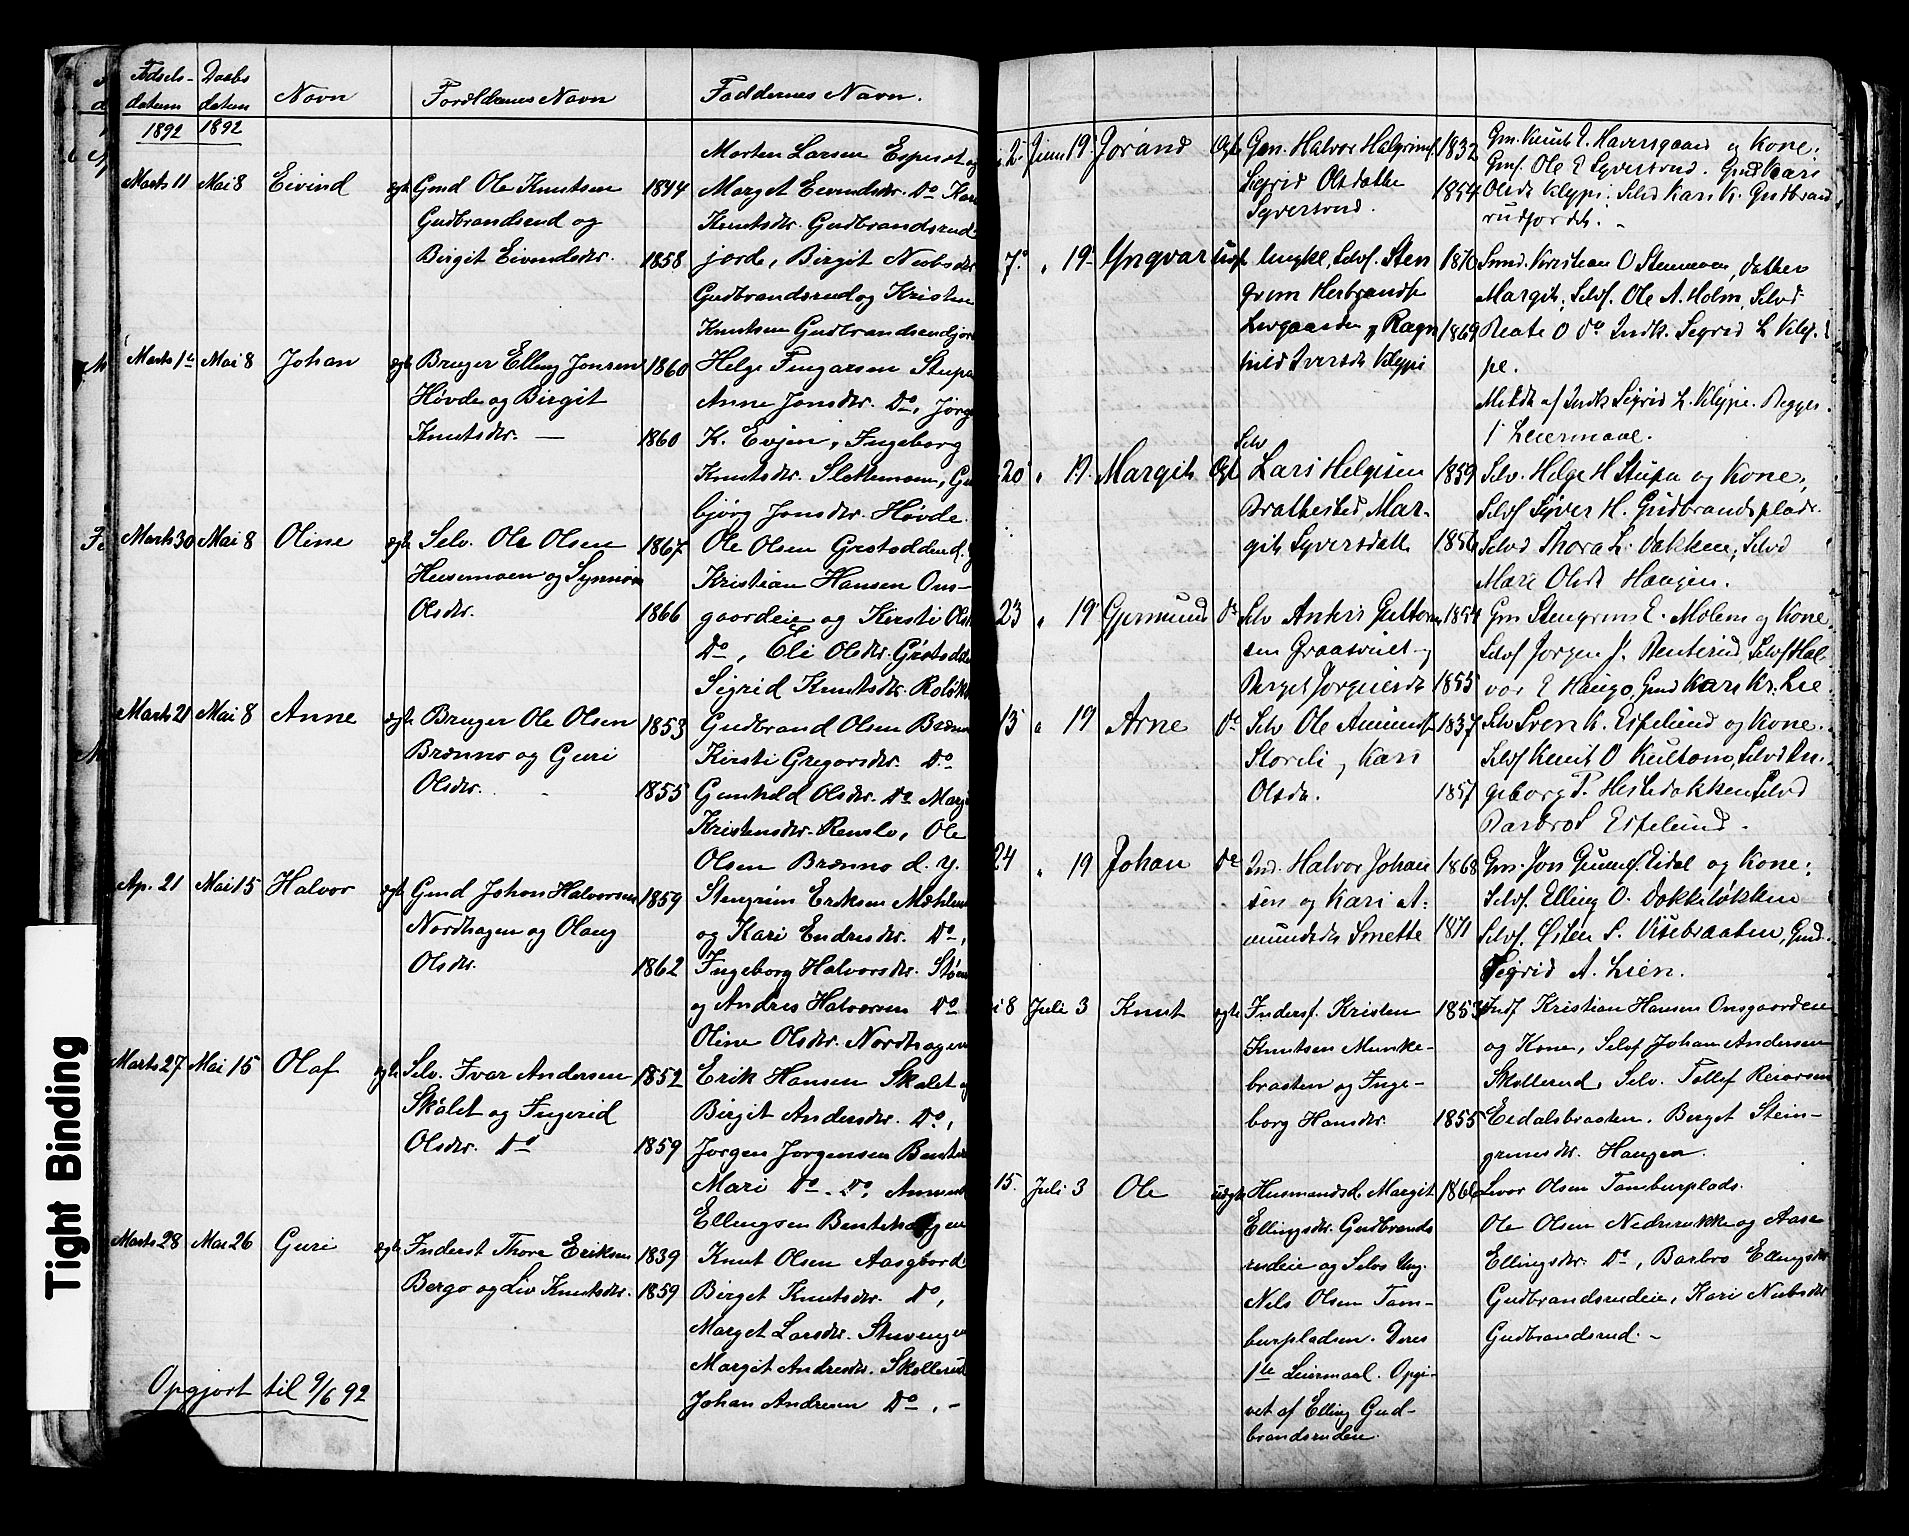 Fødsels-
datum
Daabs
datum
Navn
Foreldrenes Navn
Faddernes Navn.
1892
1892
Marts 11 Mai 8 Eivind ægte Gmd Ole Knutsen 1844
Gudbrandsrud og
Birgit Eivendsdtr. 1858
Morten Larsen Esperst og
Marget Eivendsdtr. Do Kari
Knutsdtr. Gudbrandsrud-
jorde, Birgit Nubsdtr
Gudbrandsrud og Kristen
Knutsen Gudbrandsrudjord
Marts 1te Mai 8 Johan ægte Bruger Elling Jonsen 1860
Høvde og Birgit
Knutsdtr. — 1860
Helge Fingarsen Stupa
Anne Jonsdtr. Do, Jørge
K. Evjen, Ingeborg
Knutsdtr. Slettemoen, Gu
bjørg Jonsdtr. Høvde.
Marts 30 Mai 8 Oline ægte Selv. Ole Olsen 1867
Husemoen og Synnøve
Olsdtr. 1866
Ole Olsen Grøtodden d.
Kristian Hansen Ons-
gaardeie og Kirsti Olsd
Do, Eli Olsdtr. Grøtodd
Sigrid Knutsdtr. Roløkk
Marts 21 Mai 8 Anne ægte Bruger Ole Olsen 1853
Brænno og Guri
Olsdtr. 1855
Gudbrand Olsen Brænn
Kirsti Gregorsdtr. Do
Gunhild Olsdtr. Do Marg
Kristensdtr. Renslo, Ole
Olsen Brænno d. y.
Ap. 21 Mai 15 Halvor ægte Gmd Johan Halvorsen 1859
Nordhagen og Olaug
Olsdtr. 1862
Stengrim Eriksen Mæhlum
og Kari Endresdtr. Do,
Ingeborg Halvorsdtr. Støen
og Andres Halvorsen Do
Oline Olsdtr. Nordhagen
Marts 27 Mai 15 Olaf ægte Selv. Ivar Andersen 1852
Skålet og Ingerid
Olsdtr. Do 1859
Erik Hansen Skålet
Birgit Andersdtr. Do,
Jørgen Jørgensen Bente
Mari Do. Do, Amund
Ellingsen Bentehagen
Marts 28 Mai 26 Guri ægte Inderst Thore Eriksen 1839
Bergo og Liv Knutsdtr. 1859
Knut Olsen Aasgjord
Birget Knutsdtr. Do,
Marget Larsdtr. Stuvenge
Margit Andresdtr. Skollerud
Johan Andresen Do. -
Opgjort til 9/6 92
2. Juni 19. Jorand Ægte Gm. Halvor Halgrimsf. 1832
Sigrid Olsdatte 1854
Syversrud.
Gm. Knut E. Haversgaard og Kone;
Gmf. Ole E Syversrud. Gmd Kari
Olsdt Klyppi; Selvd Kari K. Gudbrand
rudjordet. -
7. " 19 Yngvar uægte Ungkl, Selvf. Sten 1870
grim Herbrandsf
Levgaarden og Ragn 1869
hild Iversdt Klyppi
Smd. Kristian O Stenmoen, datter
Margit; Selvf. Ole A. Holm, Selvd
Beate O Do Indk. Sigrid L Klyp-
pe.
Meldt af Indk Sigrid L. Klyppe. Begges
1 Leiermaal.
20 " 19. Margit Ægte Selv
Lars Helgesen 1859
Brathested, Mar-
git Syversdatt 1856
Selv. Helge H Stupa og Kone;
Selvf Syver H. Gudbrandsplads.
Selvd Thora L. Bakken; Selvd
Mari Olsdt Haugen.
23 " 19 Gjermund Do Selv Anders Guttorm 1854
sen Graasvuet og
Berget Jorgensdt 1855
Gm Stengrim E. Molem og Kone
Selvf Jorgen J. Benterud, Selvf Hal
vor E Haugo, Gmd Kari Kr. Lie
13 " 19 Arne Do Selv Ole Amundsf 1837
Storeli og Kari
Olsdt. 1857
Selv Sven K. Espelund og Kone.
Selvf Knut O Rustom, Selvd In-
geborg P. Hestebakken, Selvd
Barbro S Espelund.
24 " 19 Johan Do Ind. Halvor Johan 1868
sen og Kari A-
mundsdt Smette 1871
Gm. Jon Gunnf Eidal og Kone;
Selvf. Elling O. Dokkeløkken
Selvf. Østen S. Visebraaten, Gmd.
Sigrid A. Lien.
8 Juli 3 Knut ægte Indersf. Kristen 1853
Knutsen Munke-
braaten og Inge-
borg Hansdtr. 1855
Indf Kristian Hansen Onsgaardeie
og Kone, Selvf Johan Andersen
Skollerud, Selv. Tollef Reiarsen
Eidalsbraaten. Berget Stein-
grimsdtr. Haugen.
15. Juli 3 Ole uægte Husmandsd Margit 1866
Ellingsdtr. Gudbrands
rudeie og Selvs Ung.
Nils Olsen Tam-
burpladsen. Deres
1te Leiermaal. Opgi-
vet af Elling Gud-
brandsruden.
Levor Olsen Tamburplads.
Ole Olsen Nedrerukke og Aase
Ellingsdtr. Do, Barbro Ellingsdtr
Gudbrandsrudeie, Kari Nubsdtr
Gudbrandsrud. -
Tight Binding